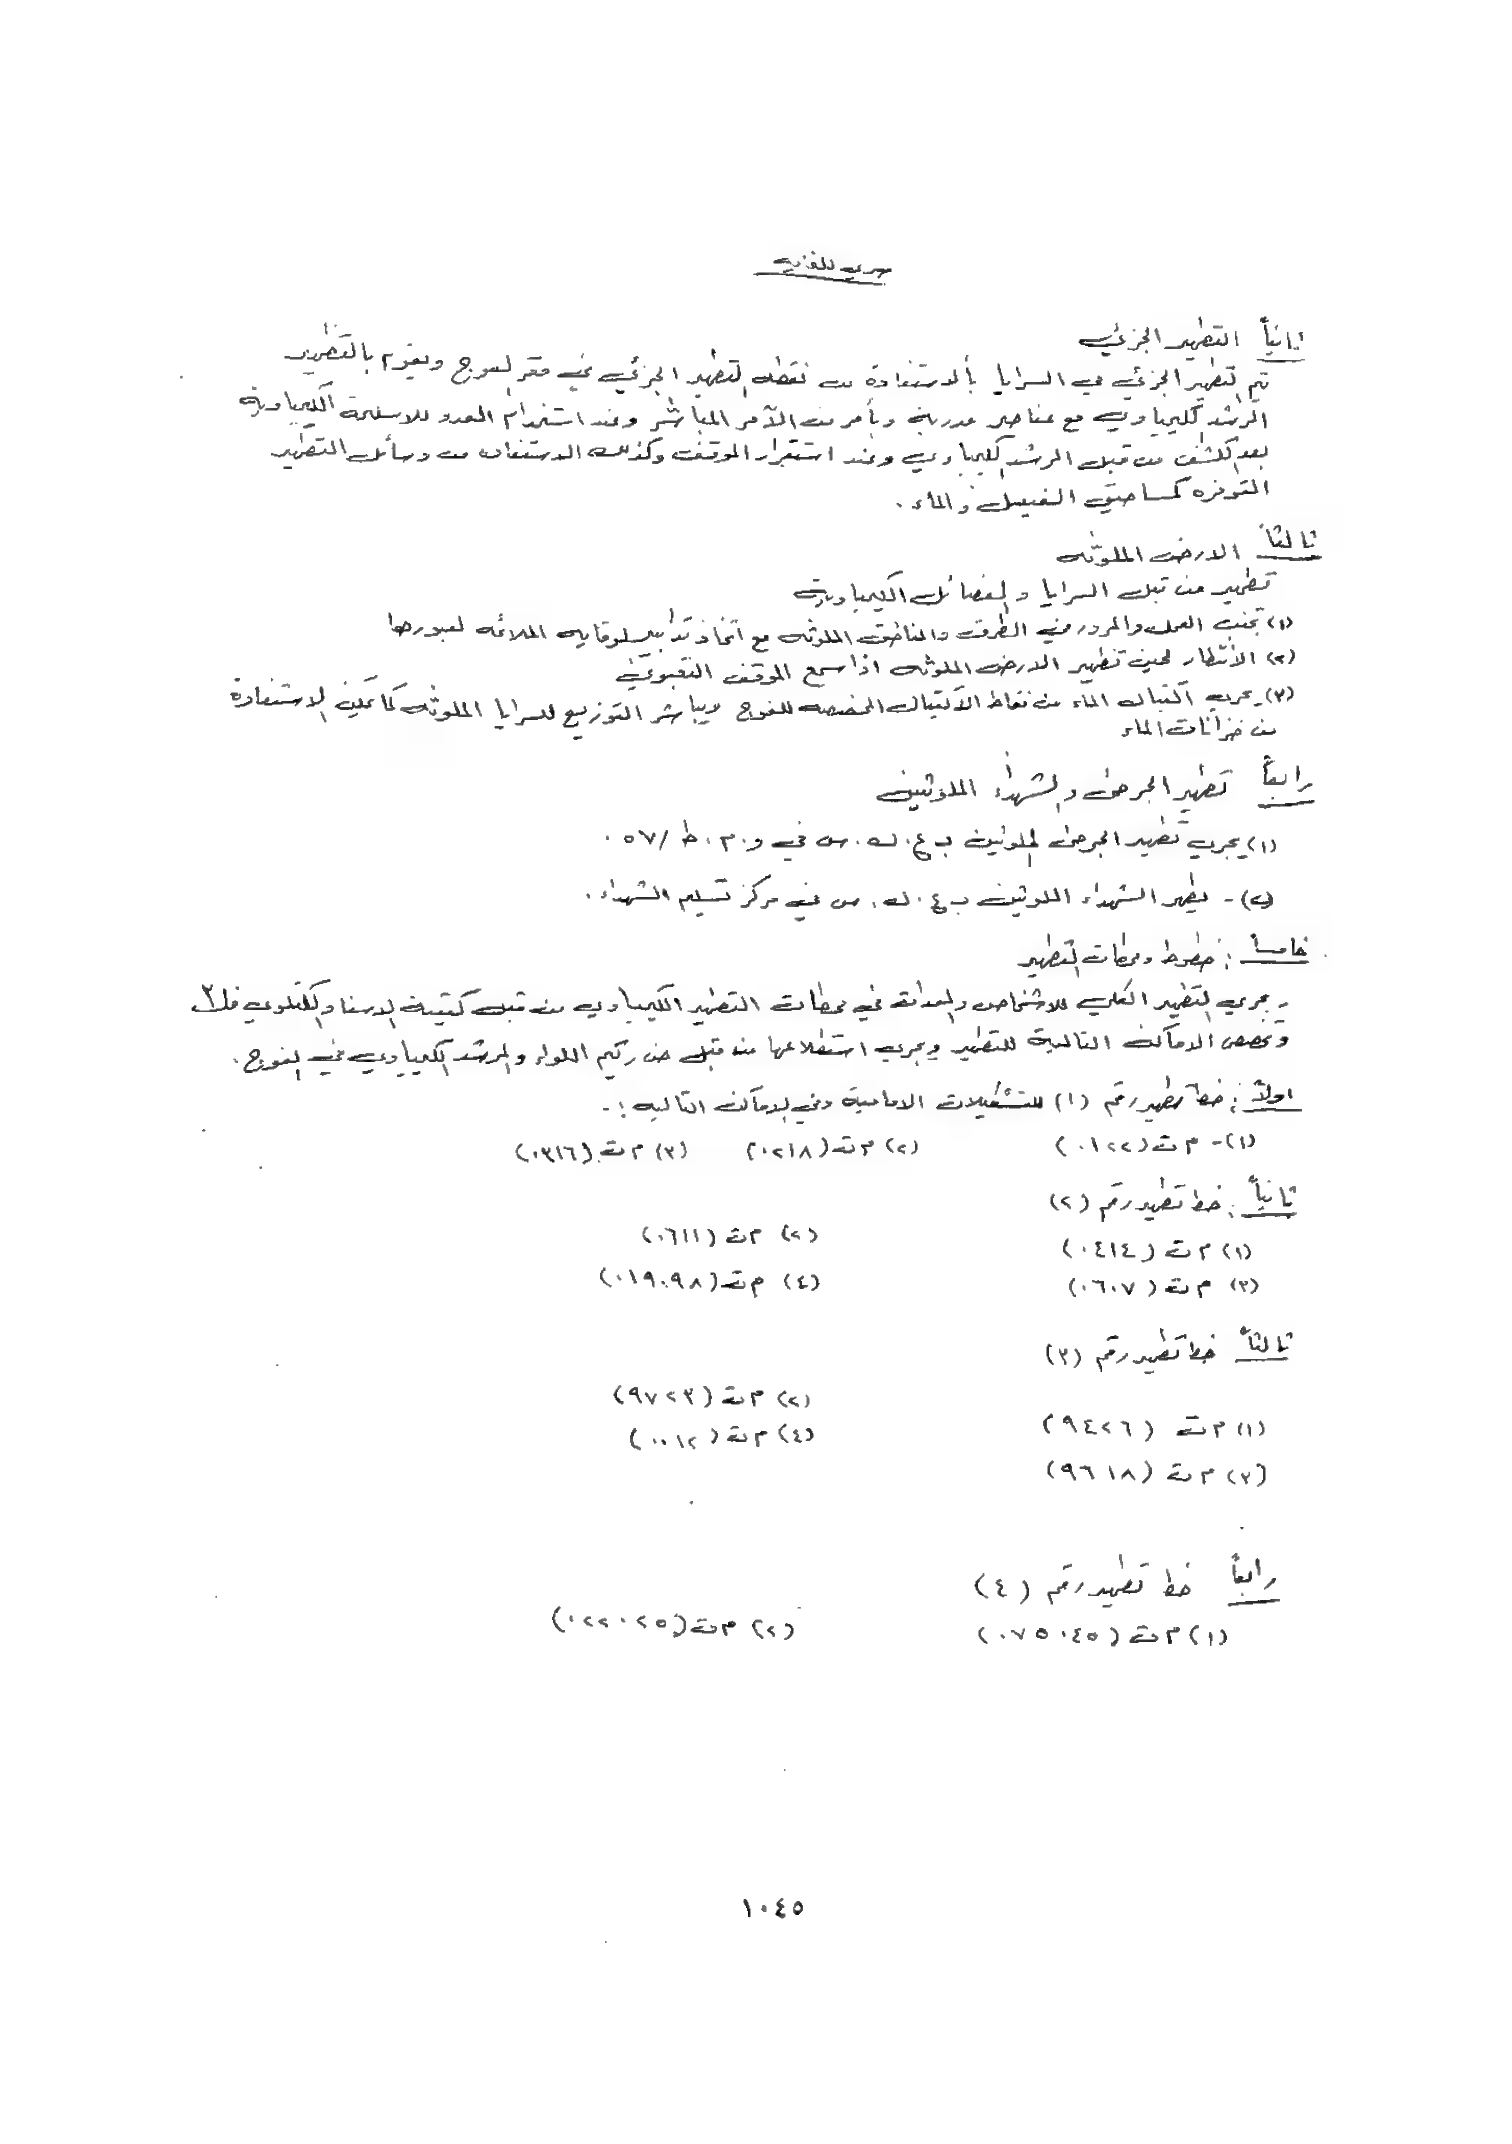 سري للغاية
ثانياً التطهير الجزئي
تم التطهير الجزئي في السرايا بألاستفادة من نقطة التطهير الجزئي في مقر الفوج ويقوم بالتطهير
المرشد الكيمياوي مع عناصر مدربة وبأمر من الآمر المباشر وعند استخدام العدو للاسلحة الكيمياوية
بعد الكشف من قبل المرشد الكيمياوي وعند استقرار الموقف وكذلك الاستفادة من وسائل التطهير
المتوفره كمساحيق الغسيل والماء .
ثالثاً الارض الملوثه
تطهير من قبل السرايا والفصائل الكيمياوية
(١) تجنب العمل والمرور في الطرق والمناطق الملوثه مع اتخاذ تدابير الوقايه الملائمه لعبورها
(٢) الأنتظار لحين تطهير الارض الملوثه اذا سمح الموقف التعبوي
(٣) يجري أكتيال الماء من نقاط الأكتيال المخصصه للفوج ويباشر التوزيع للسرايا الملوثه كما يمكن الاستفادة
من خزانات الماء
رابعاً تطهير الجرحى والشهداء الملوثين
(١) يجري تطهير الجرحى الملوثين ب ع . ك . س في و . م . ط / ٥٧ .
(٢) - يطهر الشهداء الملوثين ب ع . ك . س في مركز تسليم الشهداء .
خامساً : خطوط ومحطات التطهير
- يجري التطهير الكلي للاشخاص والمعدات في محطات التطهير الكيمياوي من قبل كتيبة الاسناد الكيمياوي فل٢
وتخصص الاماكن التالية للتطهير ويجري استطلاعها من قبل ض ركن اللواء والمرشد الكيمياوي في الفوج .
اولاً : خط تطهير رقم (١) للتشكيلات الامامية وفي الاماكن التاليه : -
(١) - م ت (٠١٢٢) (٢) م ت (٠٢١٨) (٣) م ت (٠٣١٦)
ثانياً : خط تطهير رقم (٢)
(١) م ت (٠٤١٤) (٢) م ت (٠٦١١)
(٣) م ت (٠٦٠٧) (٤) م ت (٠١٩٠٩٨)
ثالثاً خط تطهير رقم (٣)
(١) م ت (٩٤٢٦) (٢) م ت (٩٧٢٣)
(٣) م ت (٩٦١٨) (٤) م ت (٠٠١٢)
رابعاً خط تطهير رقم (٤)
(١) م ت (٠٧٥٠٤٥) (٢) م ت (٠٢٢٠٢٥)
١٠٤٥